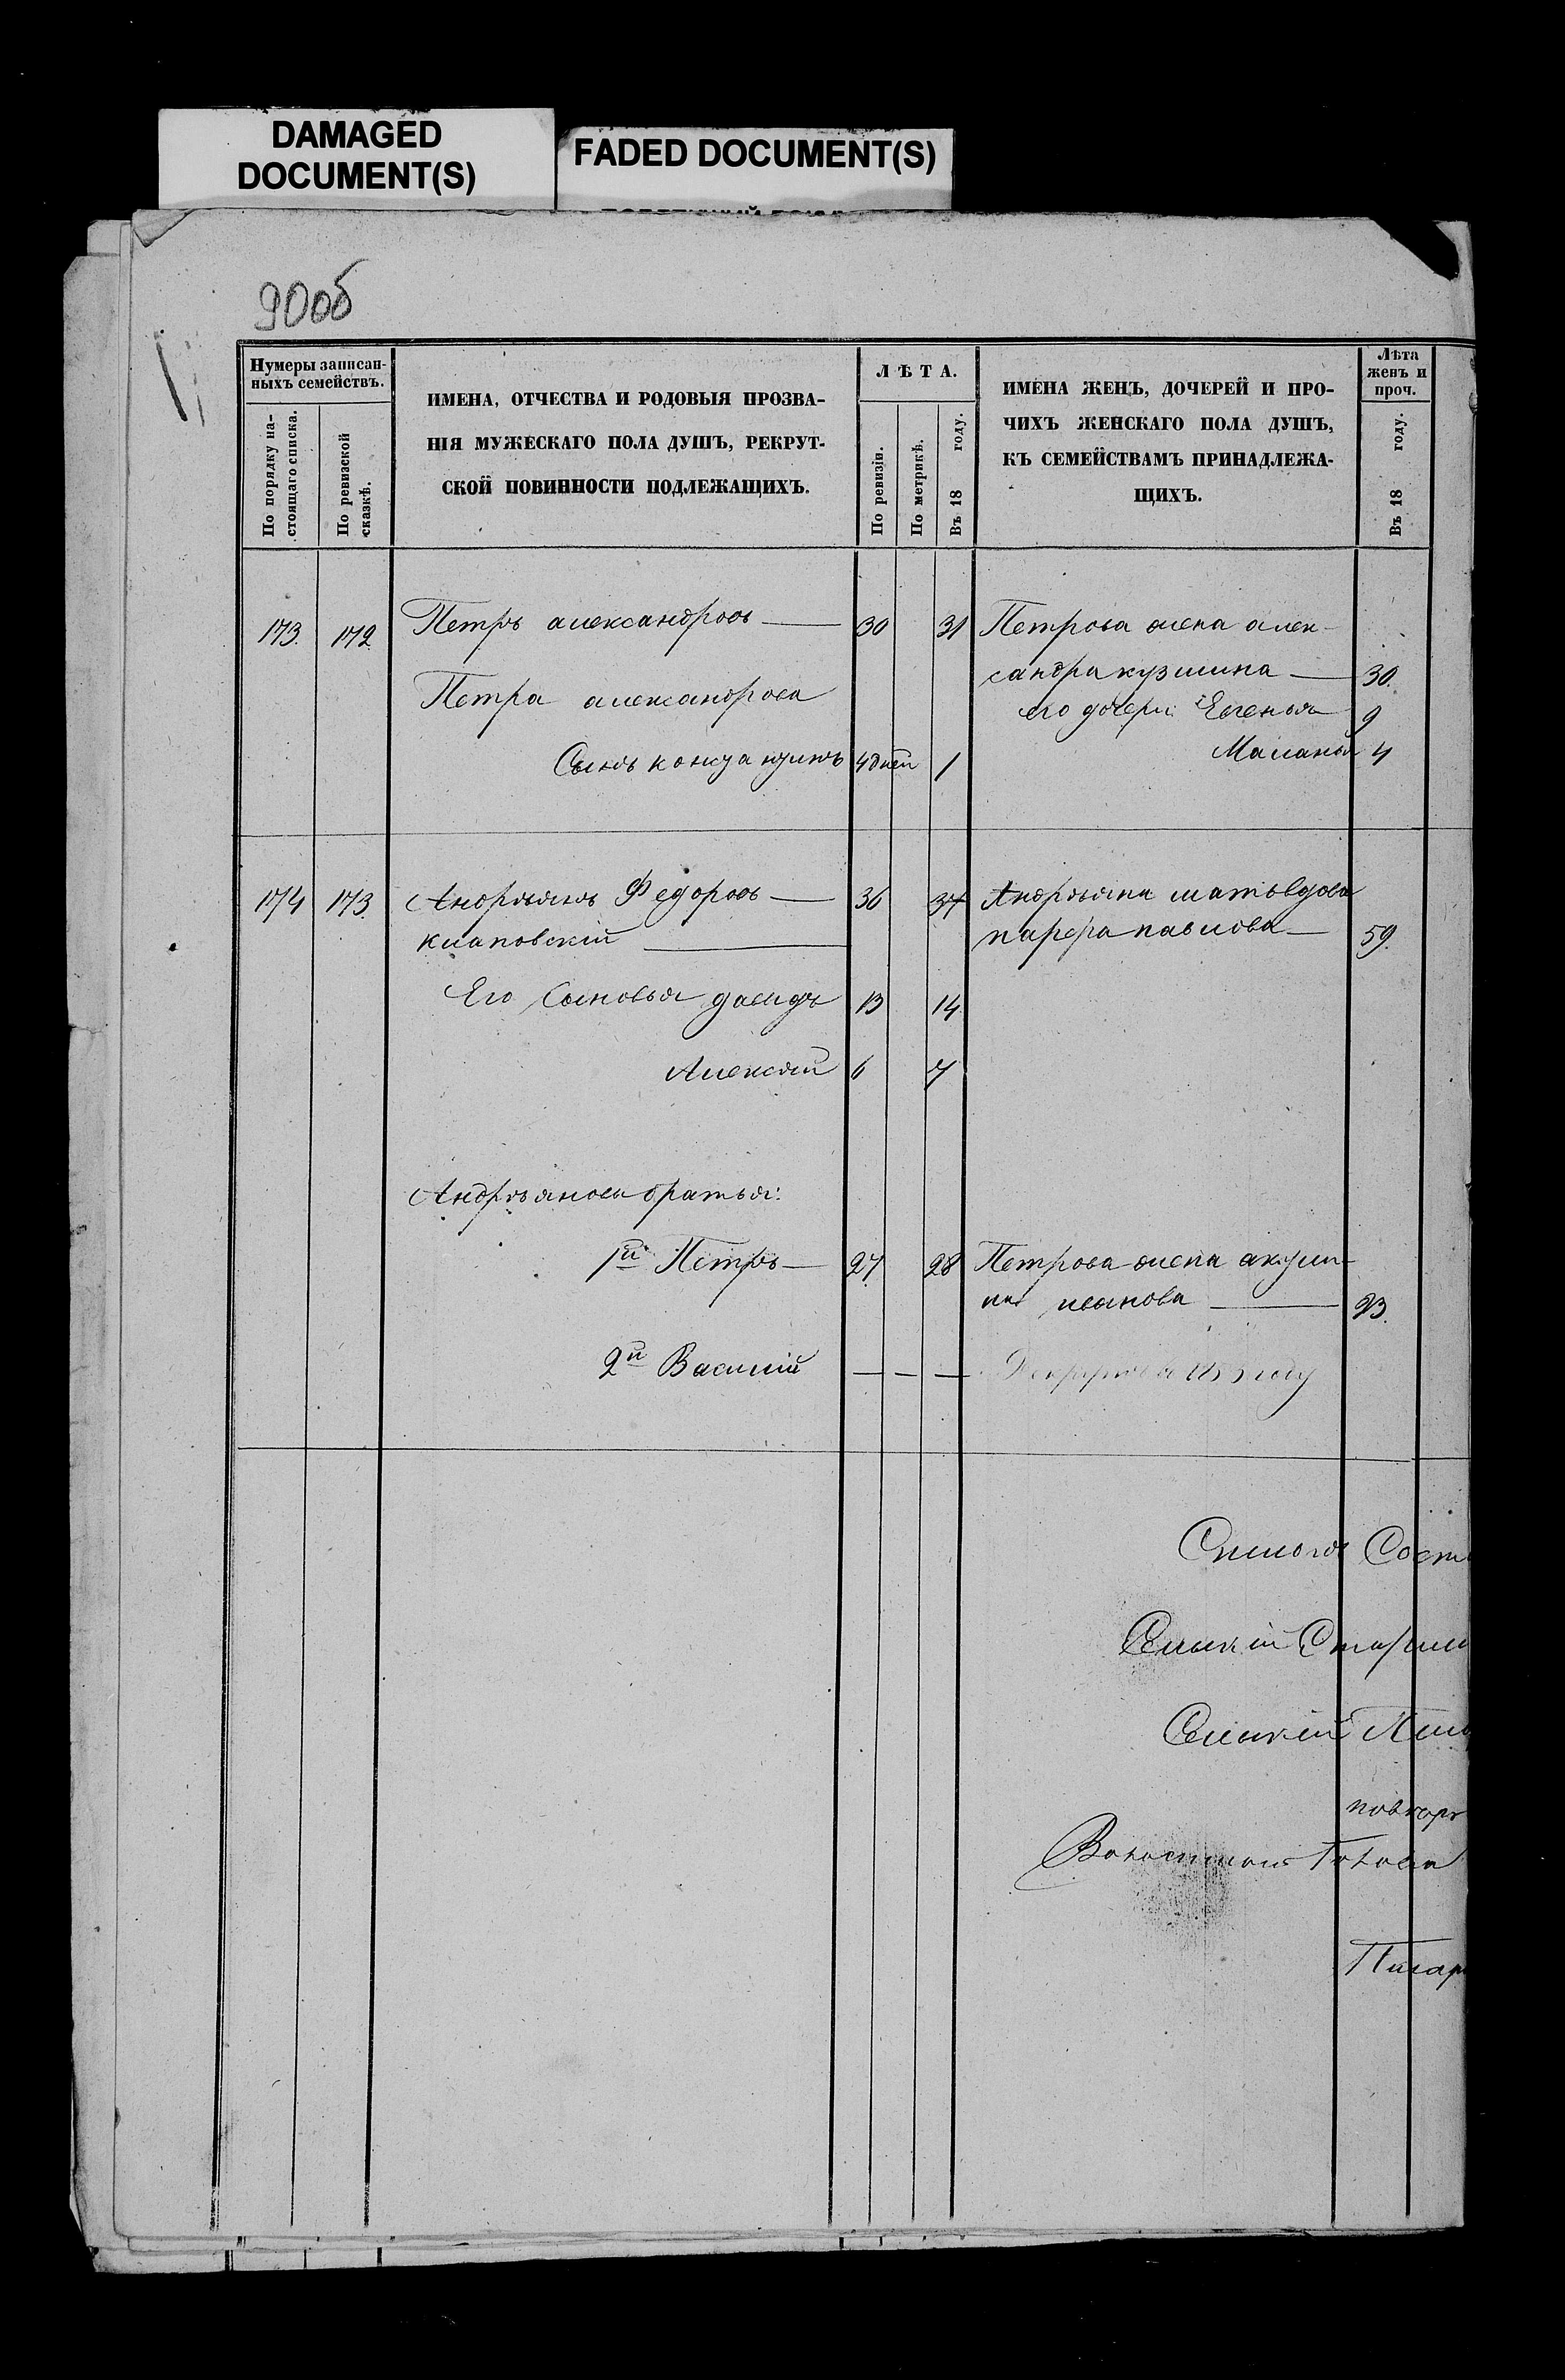 DAMAGED
DOCUMENT(S)
FADED DOCUMENT(S)
90об
Нумеры записан-
ныхъ семействъ.
По порядку на-
стоящаго списка.
По ревизской
сказкѣ.
ИМЕНА, ОТЧЕСТВА И РОДОВЫЯ ПРОЗВА-
НІЯ МУЖЕСКАГО ПОЛА ДУШЪ, РЕКРУТ-
СКОЙ ПОВИННОСТИ ПОДЛЕЖАЩИХЪ.
ЛѢТА.
По ревизіи.
По метрикѣ.
Въ 18 году.
ИМЕНА ЖЕНЪ, ДОЧЕРЕЙ И ПРО-
ЧИХЪ ЖЕНСКАГО ПОЛА ДУШЪ,
КЪ СЕМЕЙСТВАМЪ ПРИНАДЛЕЖА-
ЩИХЪ.
Лѣта
женъ и
проч.
Въ 18 году.
173. 172 Петръ александровъ — 30 31 Петрова жена алек-
сандра кузмина — 30.
Петра александрова
его дочери Евгенья 9
Сынъ константинъ 4 дней 1
Маланья 4
174 173. Андрѣянъ Федоровъ — 36 37 Андрѣяна мать вдова
клаповскій — павлова — 59.
Его Сыновья давидъ 13 14
Алексѣй 6 7
Андрѣяновы братья:
1й Петръ — 27 28 Петрова жена акули-
на иванова — 23.
2й Василій — — — году
Сельскій
Сельскій
Голова
Писарь